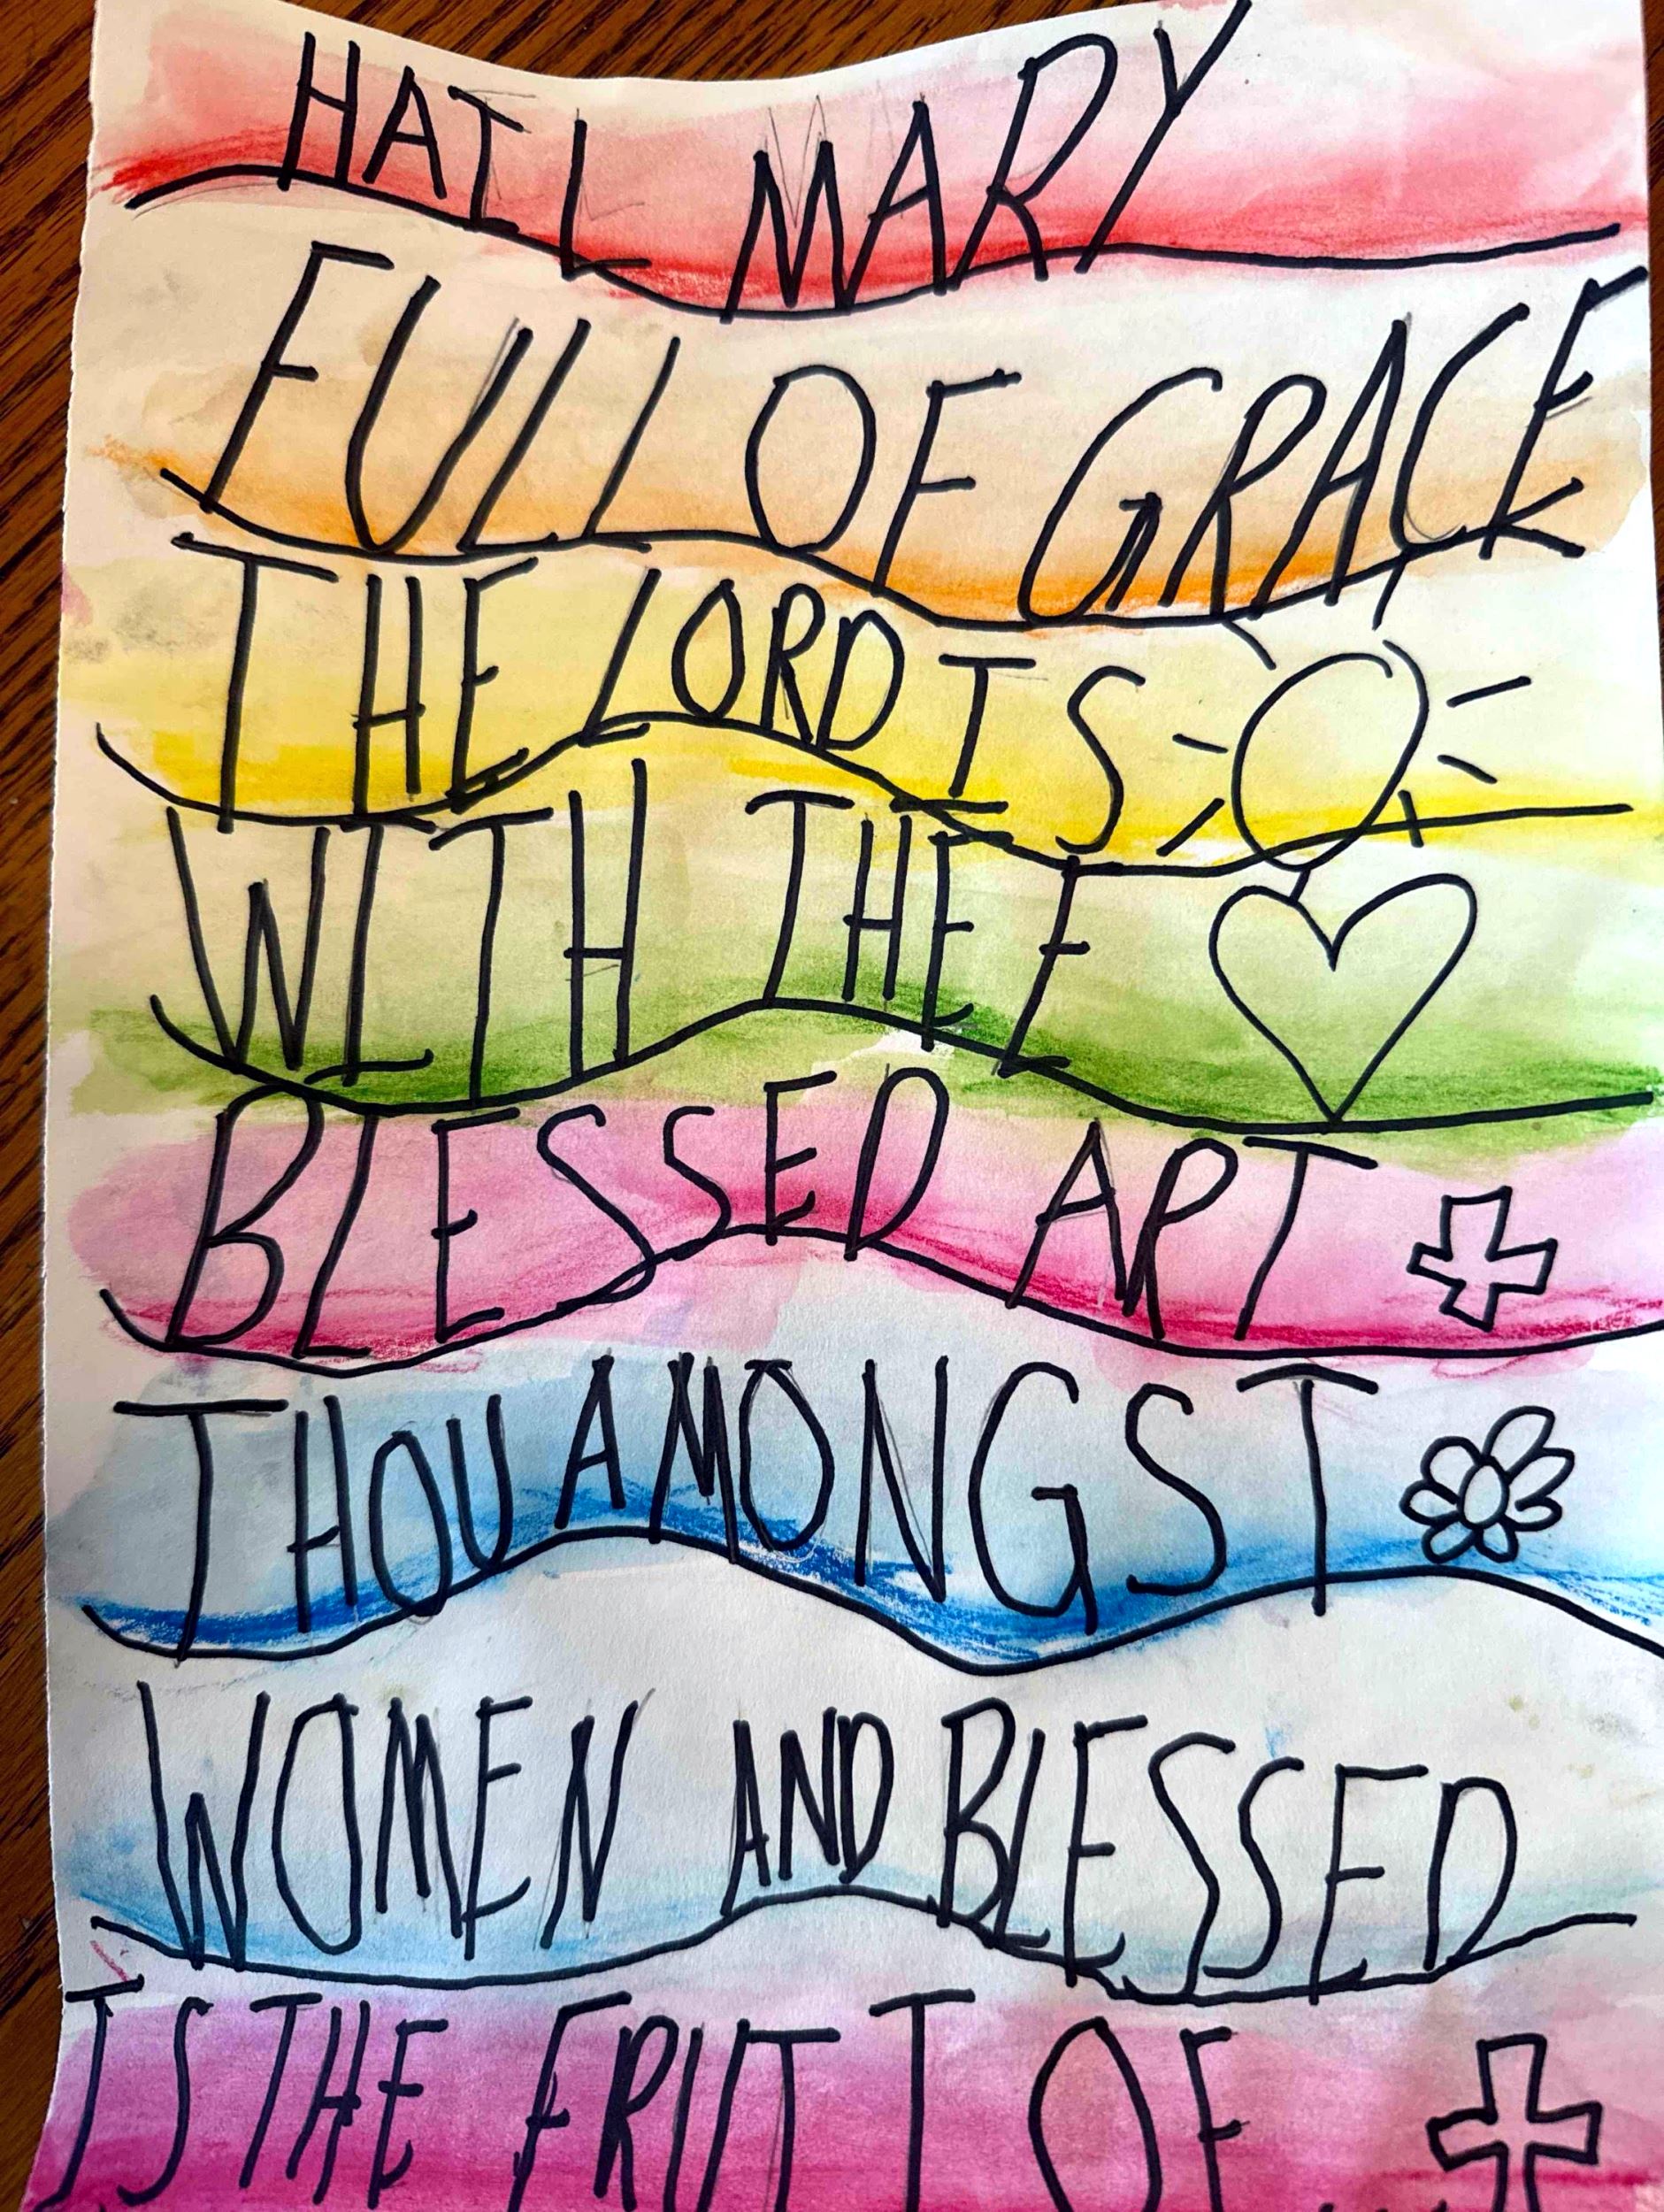 HAIL MARY
FULL OF GRACE
THE LORD IS
WITH THEE
BLESSED ART
THOU AMONGST
WOMEN AND BLESSED
IS THE FRUIT OF